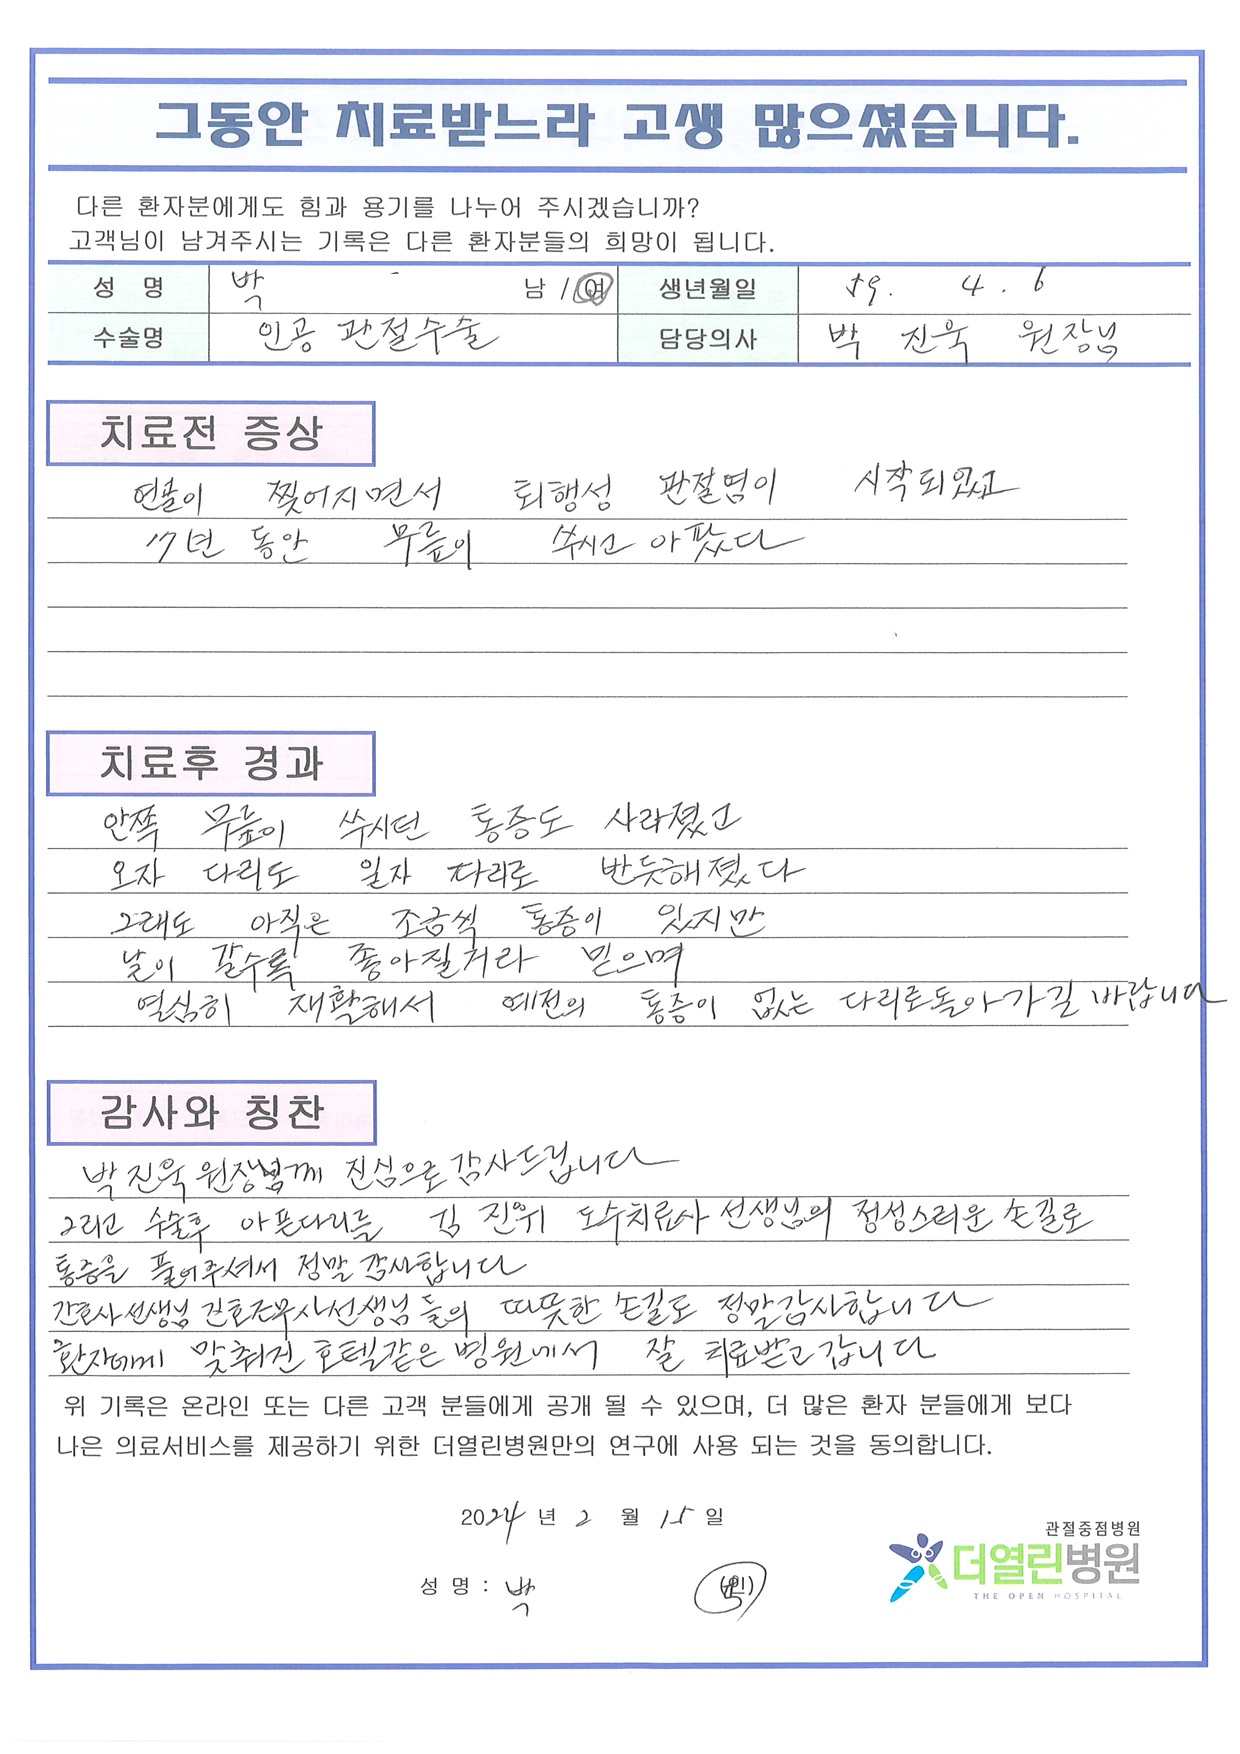 그동안 치료받느라 고생 많으셨습니다.
다른 환자분에게도 힘과 용기를 나누어 주시겠습니까?
고객님이 남겨주시는 기록은 다른 환자분들의 희망이 됩니다.
성 명 박 남 / 여 생년월일 59. 4. 6
수술명 인공 관절수술 담당의사 박 진욱 원장님
치료전 증상
연골이 찢어지면서 퇴행성 관절염이 시작되었고
17년 동안 무릎이 쑤시고 아팠다
치료후 경과
안쪽 무릎이 쑤시던 통증도 사라졌고
오자 다리도 일자 다리로 반듯해졌다
그래도 아직은 조금씩 통증이 있지만
날이 갈수록 좋아질거라 믿으며
열심히 재활해서 예전의 통증이 없는 다리로돌아가길 바랍니다
감사와 칭찬
박진욱 원장님께 진심으로 감사드립니다
그리고 수술후 아픈다리를 김 진위 도수치료사 선생님의 정성스러운 손길로
통증을 풀어주셔서 정말 감사합니다
간호사선생님 간호조무사선생님들의 따뜻한 손길도 정말감사합니다
환자에게 맞춰진 호텔같은 병원에서 잘 치료받고 갑니다
위 기록은 온라인 또는 다른 고객 분들에게 공개 될 수 있으며, 더 많은 환자 분들에게 보다
나은 의료서비스를 제공하기 위한 더열린병원만의 연구에 사용 되는 것을 동의합니다.
2024 년 2 월 15 일
성 명 : 박 (인)
관절중점병원
더열린병원
THE OPEN HOSPITAL